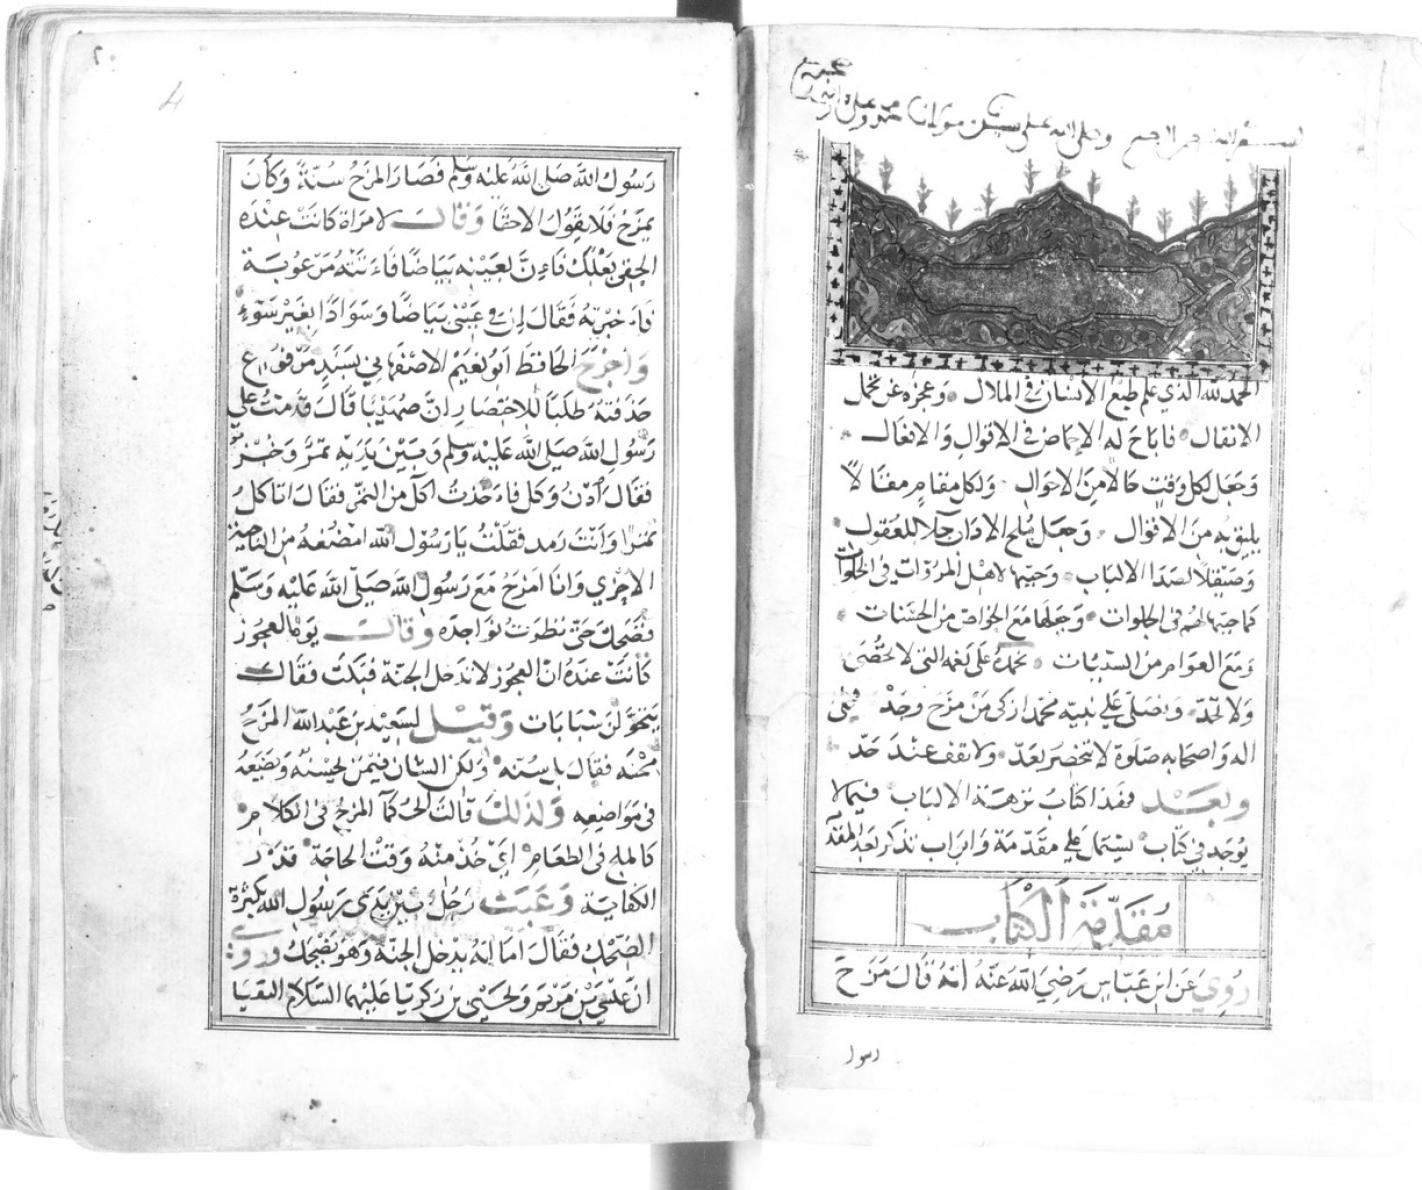 بسم الله الرحمن الرحيم وصلى الله على سيدنا ومولانا محمد وعلى اله وصحبه
الحمد لله الذي علم طبع الانسان في الملال وعجزه عن تحمل
الاثقال فاباح له الاحماض في الاقوال والافعال
وجعل لكل وقت حالا من الاحوال ولكل مقام مقالا
يليق به من الاقوال وجعل ملح الاداب جلاء للعقول
وصيقلا لصدا الالباب وحببها لاهل المروات في الخلوات
كما حببها لهم في الجلوات وجعلها مع الخواص من الحسنات
ومع العوام من السيئات نحمده على نعمه التي لا تحصى
ولا تحد ونصلي على نبيه محمد ازكى من مزح وجد وعلى
اله واصحابه صلوة لا تنحصر بعد ولا تقف عند حد
وبعد فهذا كتاب نزهة الالباب فيما لا
يوجد في كتاب يشتمل على مقدمة وابواب تذكر بعد المقدمة
مقدمة الكتاب
روي عن ابن عباس رضي الله عنه انه قال مزح
رسول
4
رسول الله صلى الله عليه وسلم فصار المزح سنة وكان
يمزح فلا يقول الا حقا وقال لامراة كانت عنده
الحقي بعلك فان بعينيه بياضا فاتته مرعوبة
فاخبرته فقال ان في عيني بياضا وسوادا بغير سوء
واخرج الحافظ ابو نعيم الاصفهاني بسند مرفوع
حذفته طلبا للاختصار ان صهيبا قال قدمت على
رسول الله صلى الله عليه وسلم وبين يديه تمر وخبز
فقال ادن وكل فاخذت اكل من التمر فقال اتاكل
تمرا وانت رمد فقلت يا رسول الله امضغه من الناحية
الاخري وانا امزح مع رسول الله صلى الله عليه وسلم
فضحك حتى نظرت نواجده وقال يوما لعجوز
كانت عنده ان العجوز لا تدخل الجنة فبكت فقال
يتحولن شبابات وقيل لسعيد بن عبد الله المزح
محنه فقال بل سنه ولكن الشان فيمن يحسنه ويضعه
في مواضعه ولذلك قالت الحكما المزح في الكلام
كالملح في الطعام اي خذ منه وقت الحاجة قدر
الكفاية وعبث رجل بين يدي رسول الله بكثرة
الضحك فقال اما انه يدخل الجنة وهو يضحك وروي
ان عيسي بن مريم ولحيى بن زكريا عليهما السلام التقيا